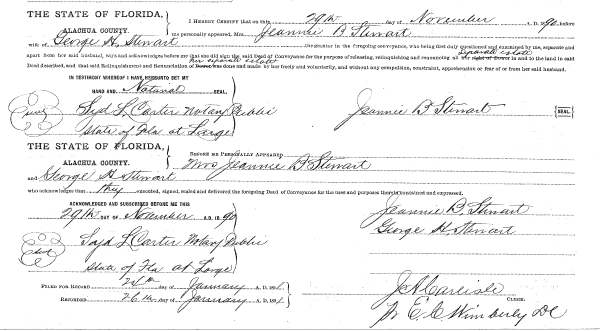 THE STATE OF FLORIDA,
ALACHUA COUNTY.
I HEREBY CERTIFY that on this 29th day of November A. D. 1890, before
me personally appeared, Mrs. Jeannie B Stewart
wife of George H. Stewart the grantor in the foregoing conveyance, who being first duly questioned and examined by me, separate and
apart from her said husband, says and acknowledges before me that she did sign the said Deed of Conveyance for the purpose of releasing, relinquishing and renouncing all her right of Dower in and to the land in said
separate estate
her separate estate
Deed described, and that said Relinquishment and Renunciation of Dower was done and made by her freely and voluntarily, and without any compulsion, constraint, apprehension or fear of or from her said husband.
IN TESTIMONY WHEREOF I HAVE HEREUNTO SET MY
HAND AND Notarial SEAL.
Syd L Carter Notary Public
State of Fla at Large
Jeannie B Stewart [SEAL.]
THE STATE OF FLORIDA,
ALACHUA COUNTY.
BEFORE ME PERSONALLY APPEARED
Mrs Jeannie B Stewart
and George H Stewart
who acknowledges that they executed, signed, sealed and delivered the foregoing Deed of Conveyance for the uses and purposes therein contained and expressed.
ACKNOWLEDGED AND SUBSCRIBED BEFORE ME THIS
29th DAY OF November A. D. 1890
Syd L Carter Notary Public
State of Fla at Large
Jeannie B, Stewart
George H. Stewart
FILED FOR RECORD 24th day of January A. D. 1891
RECORDED 26th day of January A. D. 1891
J A Carlisle CLERK.
pr E. C Wimberly DC